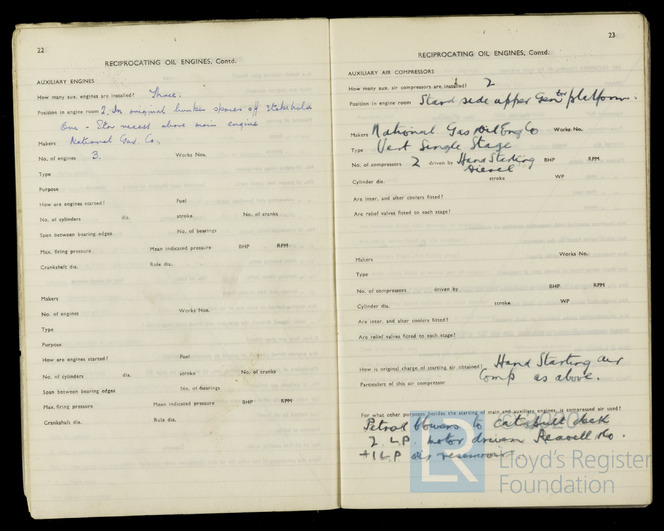 22
RECIPROCATING OIL ENGINES, Contd.
AUXILIARY ENGINES
How many aux. engines are installed? Three.
Position in engine room 2. In original bunker spaces off Stokehold
One - Star recess above main engine
Makers National Gas. Co.
No. of engines 3. Works Nos.
Type
Purpose
How are engines started? Fuel
No. of cylinders dia. stroke No. of cranks
Span between bearing edges No. of bearings
Max. firing pressure Mean indicated pressure BHP RPM
Crankshaft dia. Rule dia.
Makers
No. of engines Works Nos.
Type
Purpose
How are engines started? Fuel
No. of cylinders dia. stroke No. of cranks
Span between bearing edges No. of bearings
Max. firing pressure Mean indicated pressure BHP RPM
Crankshaft dia. Rule dia.
23
RECIPROCATING OIL ENGINES, Contd.
AUXILIARY AIR COMPRESSORS
How many aux. air compressors are installed? 2
Position in engine room Starbd side upper Gentr platform.
Makers National Gas Oil Eng Co Works No.
Type Vert Single Stage
No. of compressors 2 driven by Hand Starting BHP RPM
Diesel
Cylinder dia. stroke WP
Are inter. and after coolers fitted?
Are relief valves fitted to each stage?
Makers Works No.
Type
No. of compressors driven by BHP RPM
Cylinder dia. stroke WP
Are inter. and after coolers fitted?
Are relief valves fitted to each stage?
How is original charge of starting air obtained? Hand Starting air
Particulars of this air compressor Comp as above.
For what other purposes besides the starting of main and auxiliary engines, is compressed air used?
Petrol blowers to catapult deck
2 L.P. motor driven Reavell do.
+ 1 L.P air reservoir.
LR Lloyd's Register
Foundation